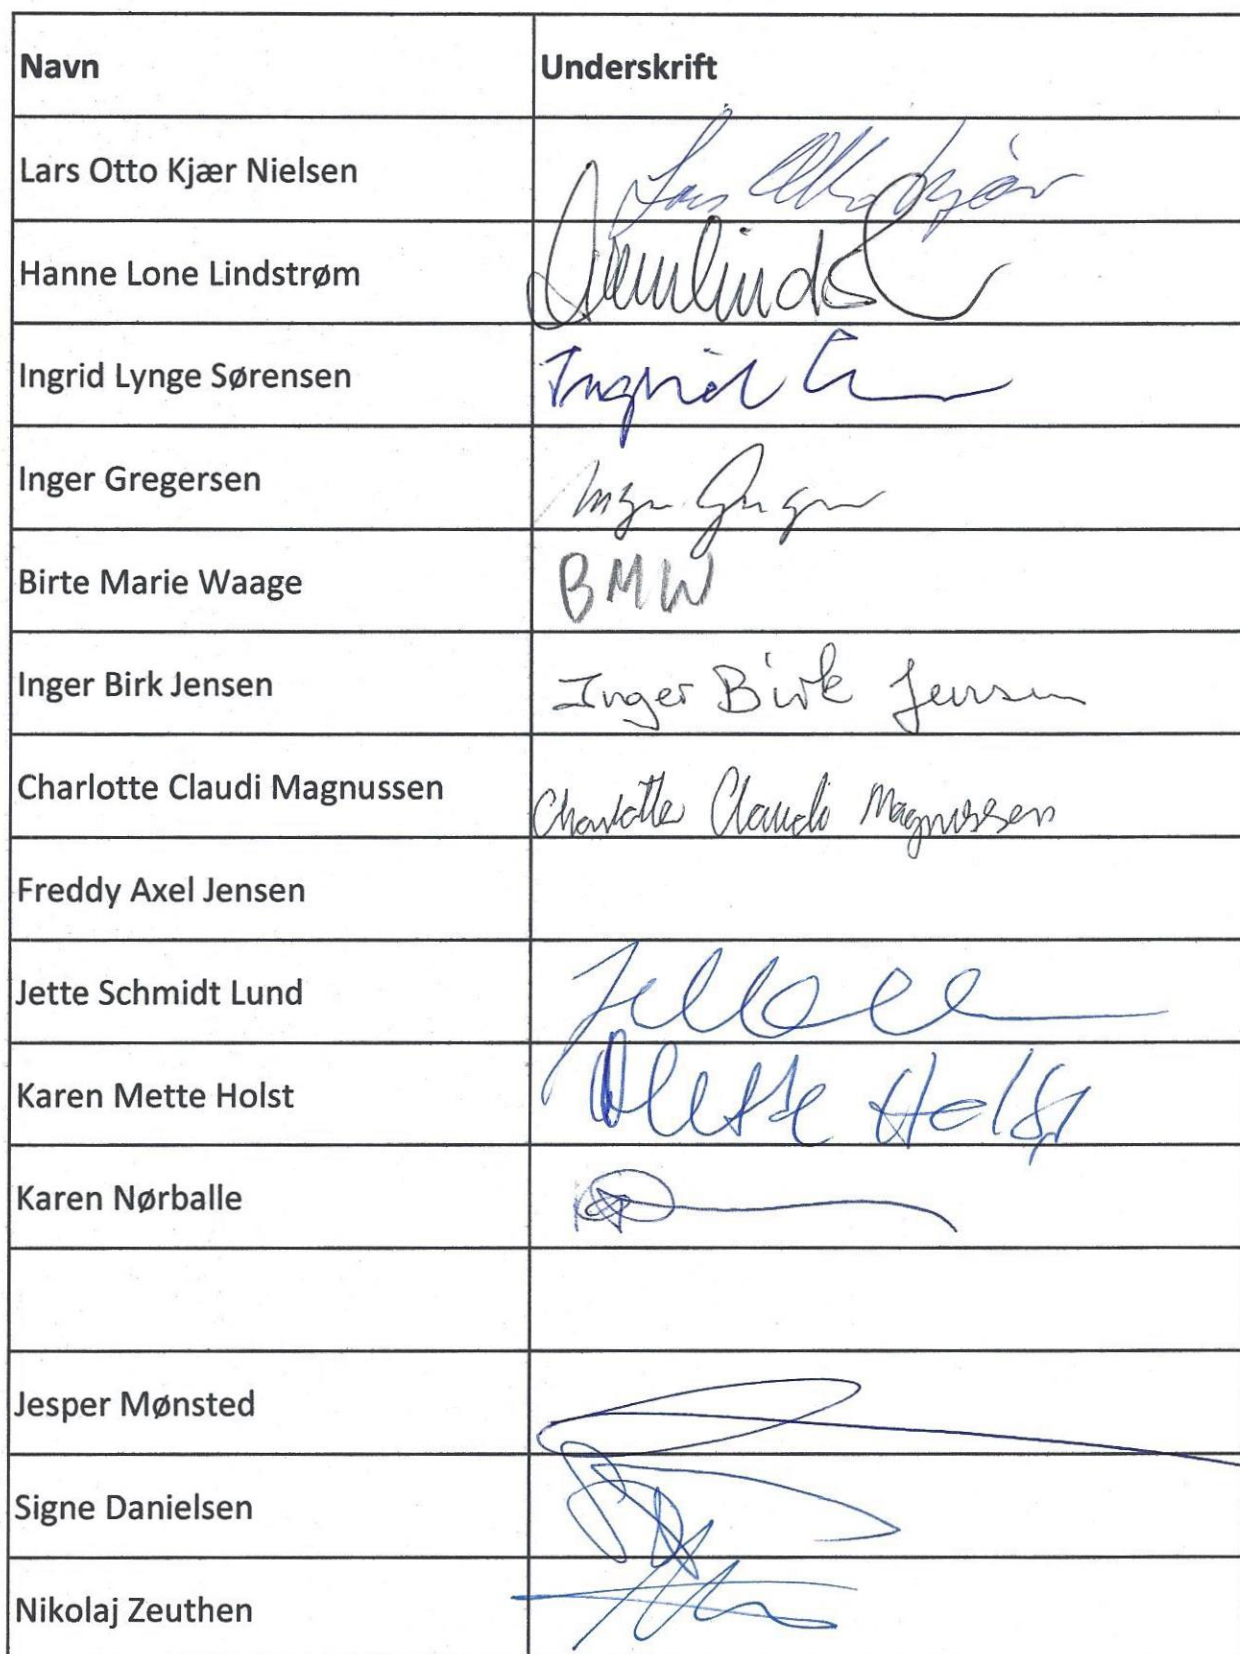 Navn Underskrift
Lars Otto Kjær Nielsen Lars Otto Kjær
Hanne Lone Lindstrøm
Ingrid Lynge Sørensen Ingrid
Inger Gregersen Inger
Birte Marie Waage BMW
Inger Birk Jensen Inger Birk Jensen
Charlotte Claudi Magnussen Charlotte Claudi Magnussen
Freddy Axel Jensen
Jette Schmidt Lund
Karen Mette Holst Mette Holst
Karen Nørballe
Jesper Mønsted
Signe Danielsen
Nikolaj Zeuthen